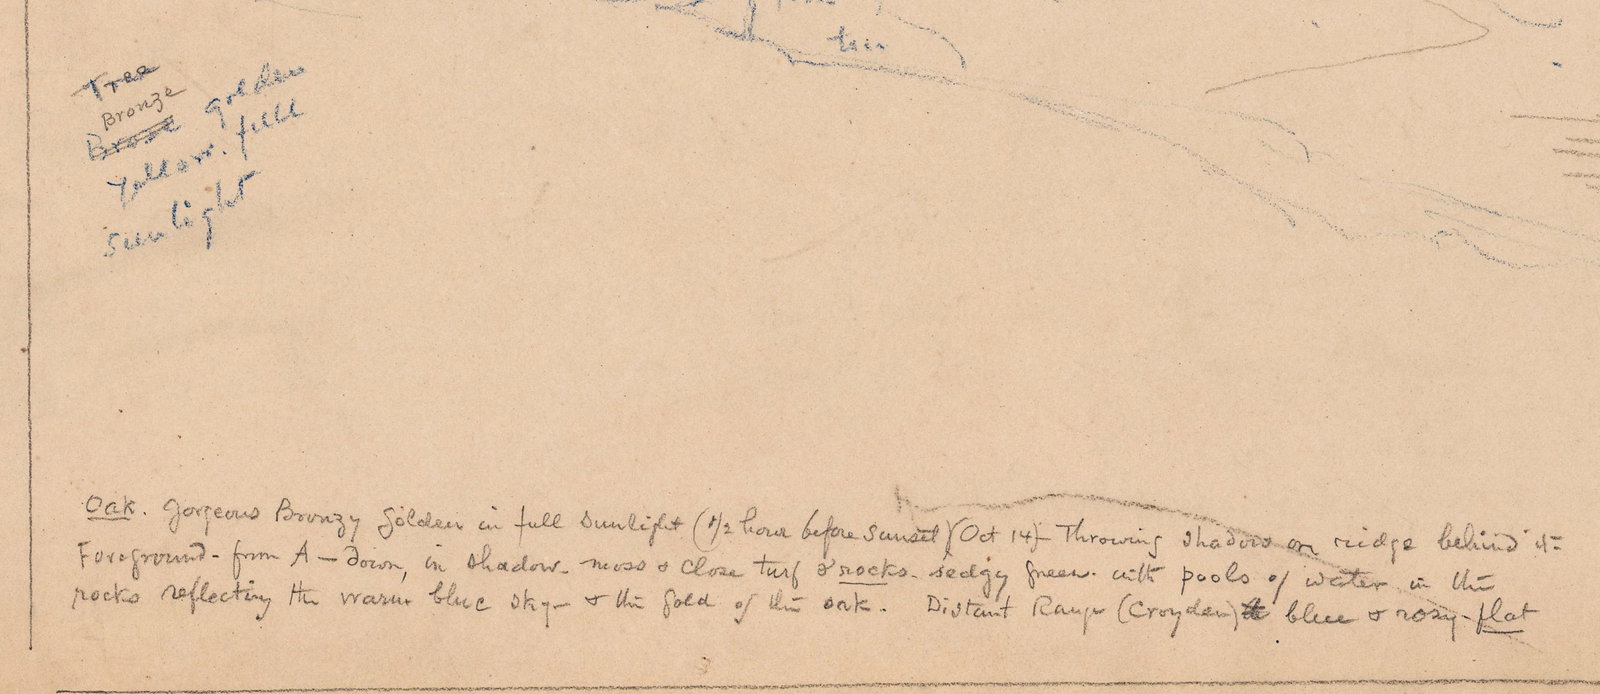 tree
Tree
Bronze
golden
yellow. full
sunlight
Oak. Gorgeous Bronzy golden in full sunlight (1/2 hour before sunset) (Oct 14) - Throwing shadow on ridge behind it -
Foreground - from A - down, in shadow - moss & close turf & rocks. sedgy green. with pools of water in the
rocks reflecting the warm blue sky - & the gold of the oak. Distant Range (Croyden) blue & rosy - flat